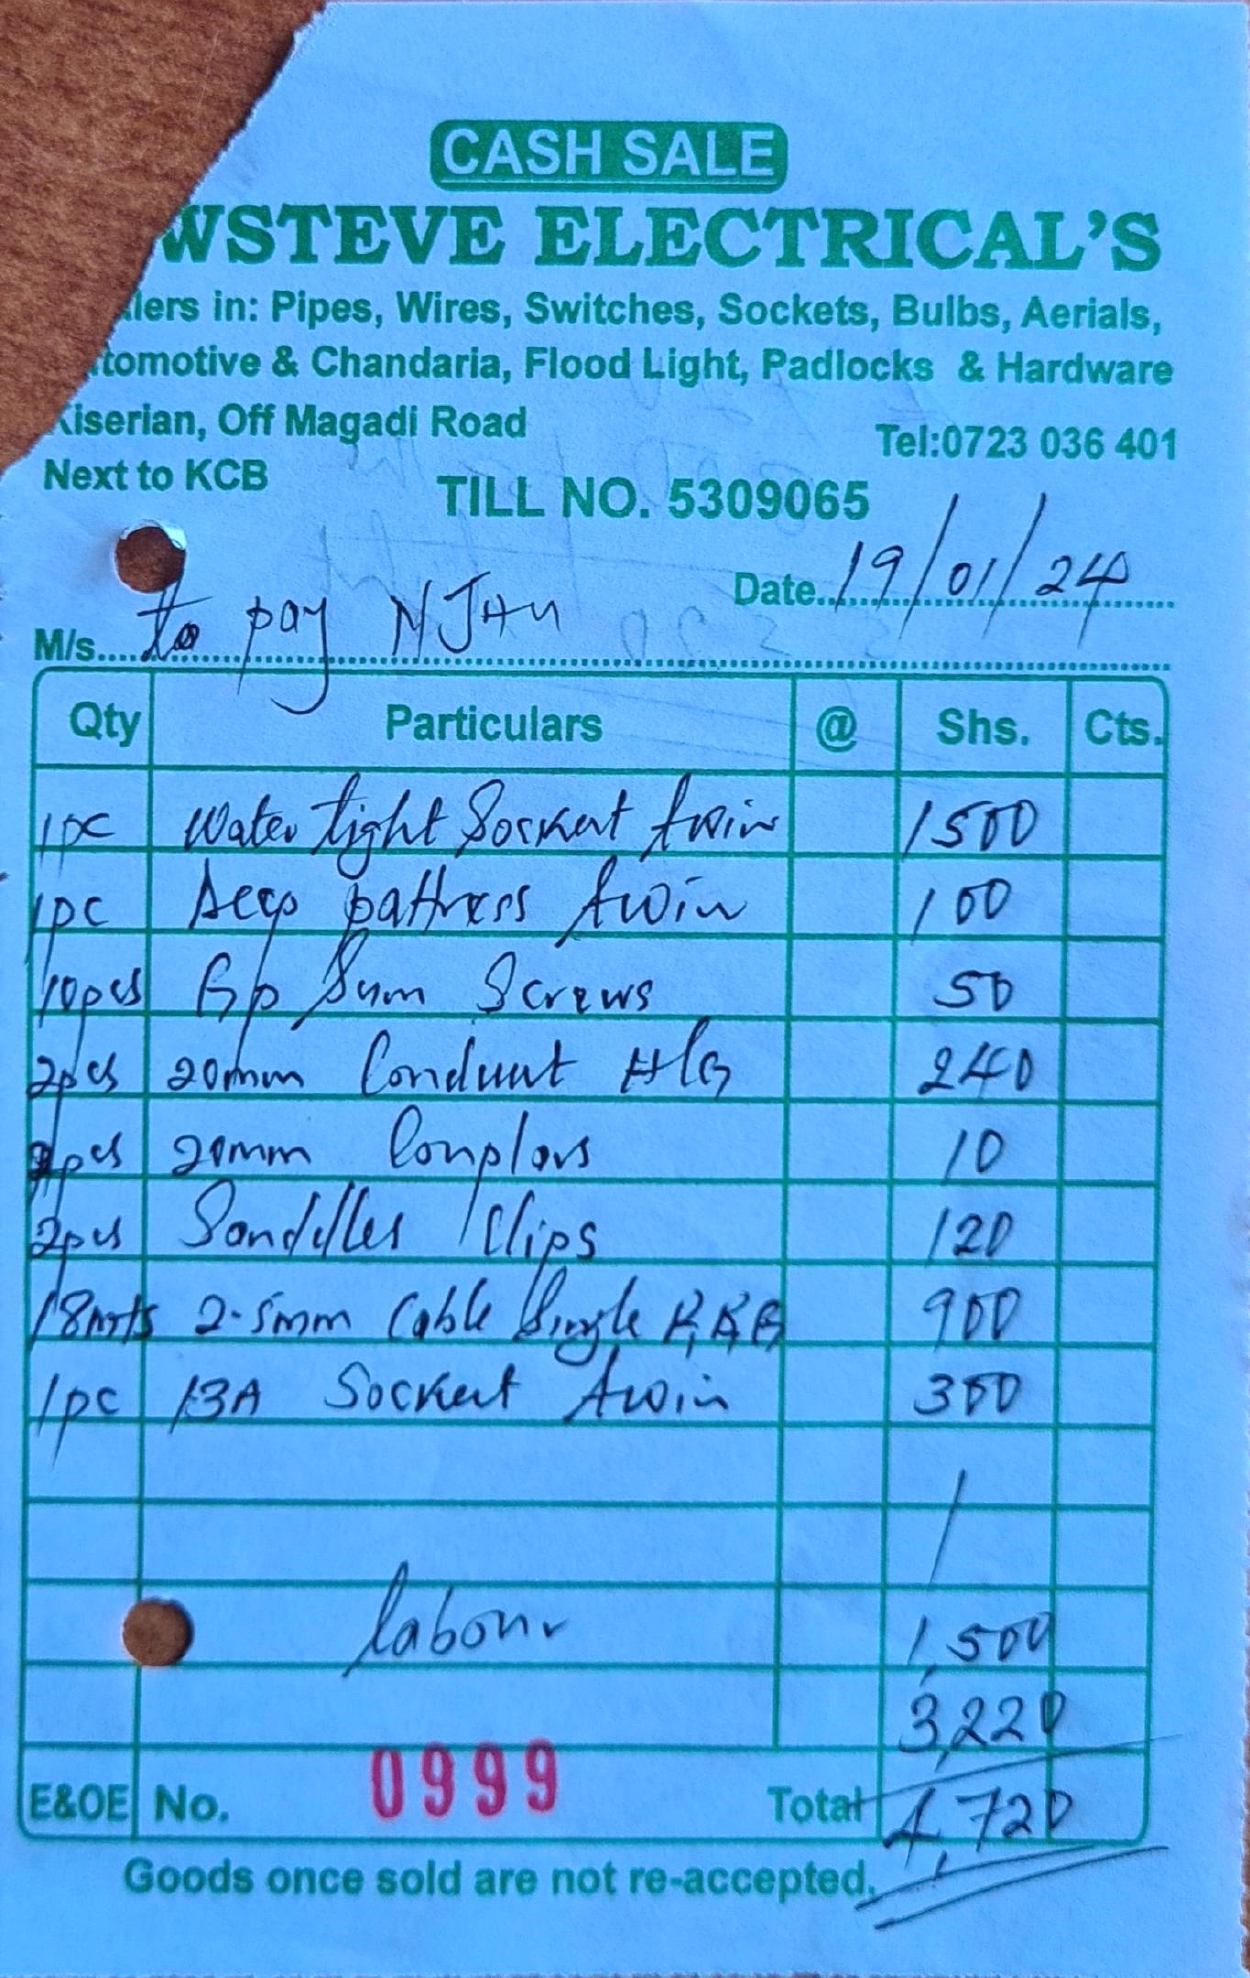 CASH SALE
WSTEVE ELECTRICAL'S
lers in: Pipes, Wires, Switches, Sockets, Bulbs, Aerials,
tomotive & Chandaria, Flood Light, Padlocks & Hardware
Kiserian, Off Magadi Road
Tel:0723 036 401
Next to KCB
TILL NO. 5309065
Date 19/01/24
M/s. to pay NJHU
Qty Particulars @ Shs. Cts.
1pc Water tight Sockert twin 1500
1pc Deep pattress twin 100
10pcs Gyp Screws 50
2pcs 20mm Conduut HG 240
pcs 20mm Couplors 10
2pcs Sanddles / Clips 120
18mts 2.5mm Cable Single 900
1pc 13A Sockert twin 300
/
labour 1,500
3,220
E&OE No. 0999 Total 4,720
Goods once sold are not re-accepted.